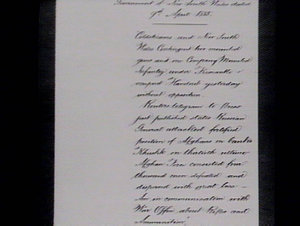 Government of New South Wales dated
9th April 1885.
Coldstreams and New South
Wales Contingent two mounted
guns and one Company Mounted
Infantry under Fremantle
occupied Handoub yesterday
without opposition
Reuters telegram to Press
just published states Russian
General attacked fortified
position of Afghans on
Khushk on thirtieth ultimo
Afghan Force consisted four
thousand men defeated and
dispersed with great loss
in communication with
War Office about Rifles and
Ammunition".